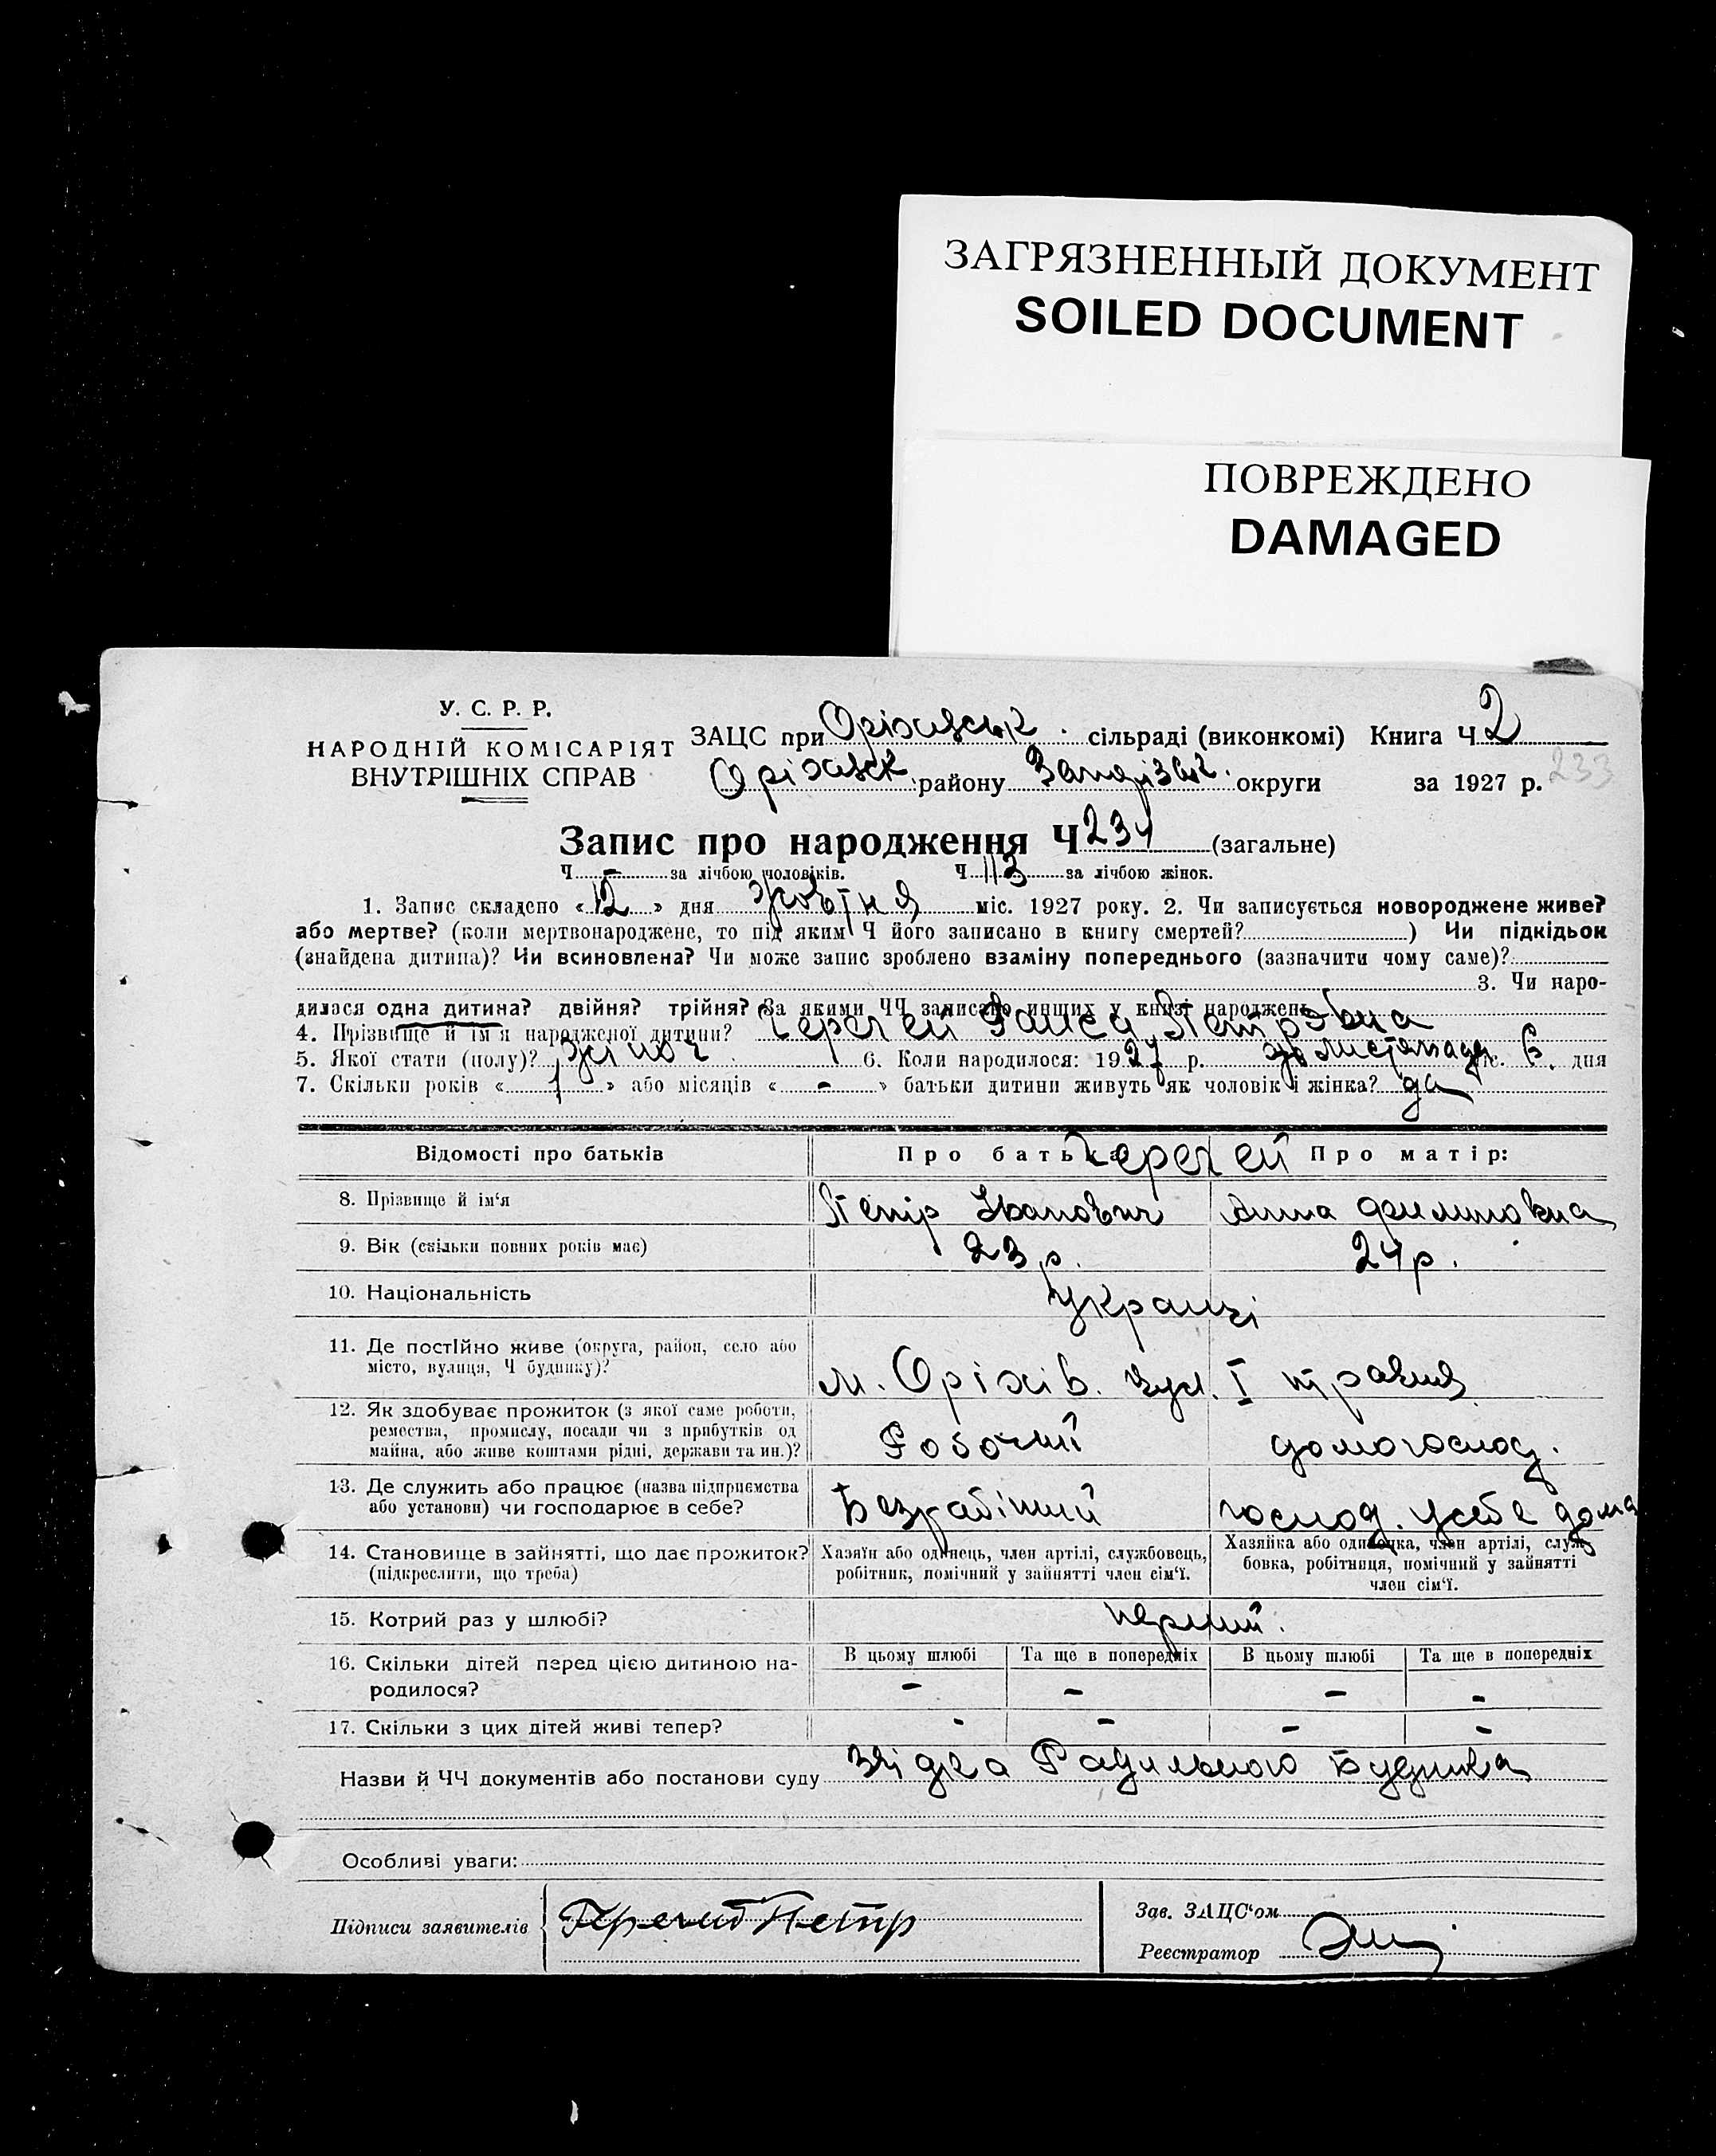 ЗАГРЯЗНЕННЫЙ ДОКУМЕНТ
SOILED DOCUMENT
ПОВРЕЖДЕНО
DAMAGED
У. С. Р. Р.
НАРОДНІЙ КОМІСАРІЯТ
ВНУТРІШНІХ СПРАВ
ЗАЦС при Оріхівськ. сільраді (виконкомі) Книга Ч 2
Оріхівск. району Запоріськ. округи за 1927 р. 233
Запис про народження Ч 234 (загальне)
Ч - за лічбою чоловіків. Ч 113 за лічбою жінок.
1. Запис складено «12» дня жовтня міс. 1927 року. 2. Чи записується новороджене живе?
або мертве? (коли мертвонароджене, то під яким Ч його записано в книгу смертей? ) Чи підкідьок
(знайдена дитина)? Чи всиновлена? Чи може запис зроблено взаміну попереднього (зазначити чому саме)?
3. Чи наро-
дилася одна дитина? двійня? трійня? За якими ЧЧ записано инших у книзі народжень
4. Прізвище й ім'я народженої дитини? Раиса Петровна
5. Якої стати (полу)? жіноч. 6. Коли народилося: 1927 р. міс. 6. дня
7. Скільки років «1» або місяців «-» батьки дитини живуть як чоловік і жінка? да
Відомості про батьків Про батька: Про матір:
8. Прізвище й ім'я Петр Іванович Анна Филиповна
9. Вік (скільки повних років має) 23 р. 24 р.
10. Національність Українці
11. Де постійно живе (округа, район, село або
місто, вулиця, Ч будинку)? м. Оріхів. вул. І травня
12. Як здобуває прожиток (з якої саме роботи,
ремества, промислу, посади чи з прибутків од
майна, або живе коштами рідні, держави та ин.)? Робочий домогоспод.
13. Де служить або працює (назва підприємства
або установи) чи господарює в себе? Безробітний господ. у себе дома
14. Становище в зайнятті, що дає прожиток?
(підкреслити, що треба)
Хазяїн або одинець, член артілі, службовець,
робітник, помічний у зайнятті член сім'ї.
Хазяйка або одиночка, член артілі, служ-
бовка, робітниця, помічний у зайнятті
член сім'ї.
15. Котрий раз у шлюбі? перший.
В цьому шлюбі Та ще в попередніх В цьому шлюбі Та ще в попередніх
16. Скільки дітей перед цією дитиною на-
родилося? - - - -
17. Скільки з цих дітей живі тепер? - - - -
Назви й ЧЧ документів або постанови суду Родильного Будинка
Особливі уваги:
Підписи заявителів Петр
Зав. ЗАЦС'ом
Реєстратор